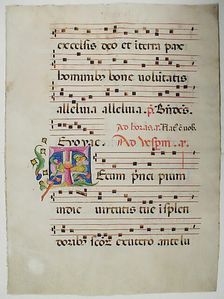 excelsis deo et in terra pax
hominibus bone voluntatis
alleluia alleluia. p.
Ad horas. a.
Evovae. Ad vesperas. a.
Tecum principium
in die virtutis tue in splen
doribus sanctorum ex utero ante lu